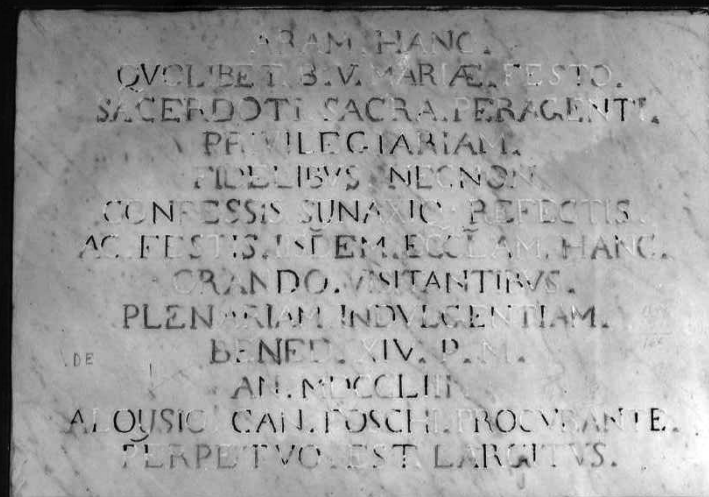 ARAM. HANC.
QVOLIBET. B. V. MARIÆ. FESTO.
SACERDOTI SACRA. PERAGENTI.
PRIVILEGIARIAM.
FIDELIBVS NECNON
CONFESSIS SUNAXIC REFECTIS
AC. FESTIS. IISDEM. ECCLAM. HANC.
ORANDO. VISITANTIBVS.
PLENARIAM INDVLGENTIAM.
BENED. XIV. P. M.
AN. MDCCLIII
ALOYSIO CAN. FOSCHI. PROCVRANTE.
PERPETVO. EST. LARGITVS.
DE